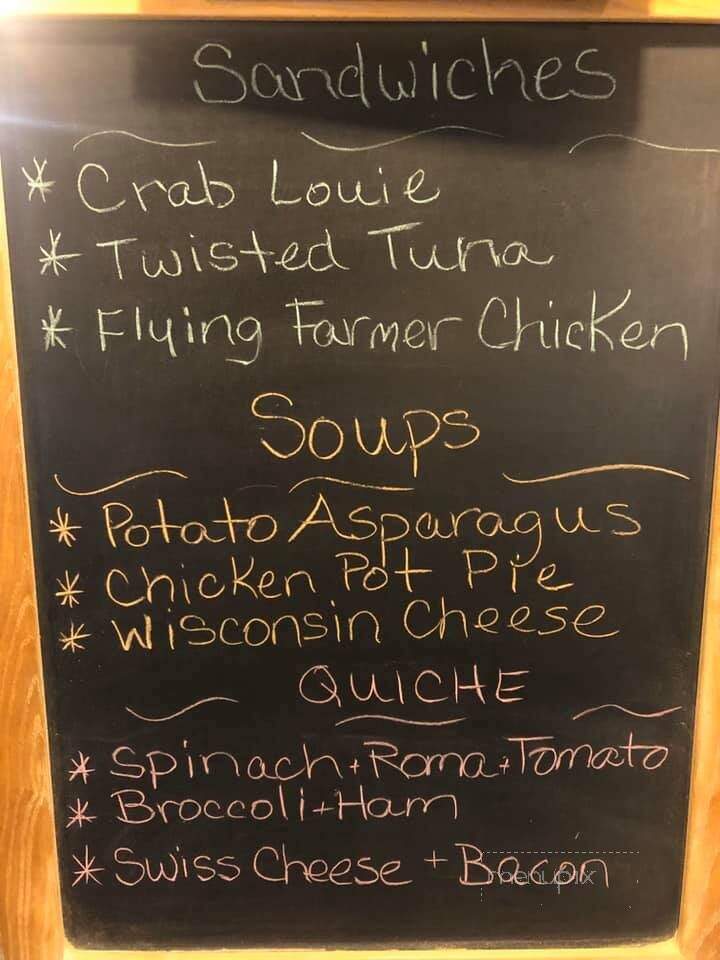 Sandwiches
* Crab Louie
* Twisted Tuna
* Flying Farmer Chicken
Soups
* Potato Asparagus
* Chicken Pot Pie
* Wisconsin Cheese
QUICHE
* Spinach + Roma + Tomato
* Broccoli + Ham
* Swiss Cheese + Bacon
menupix